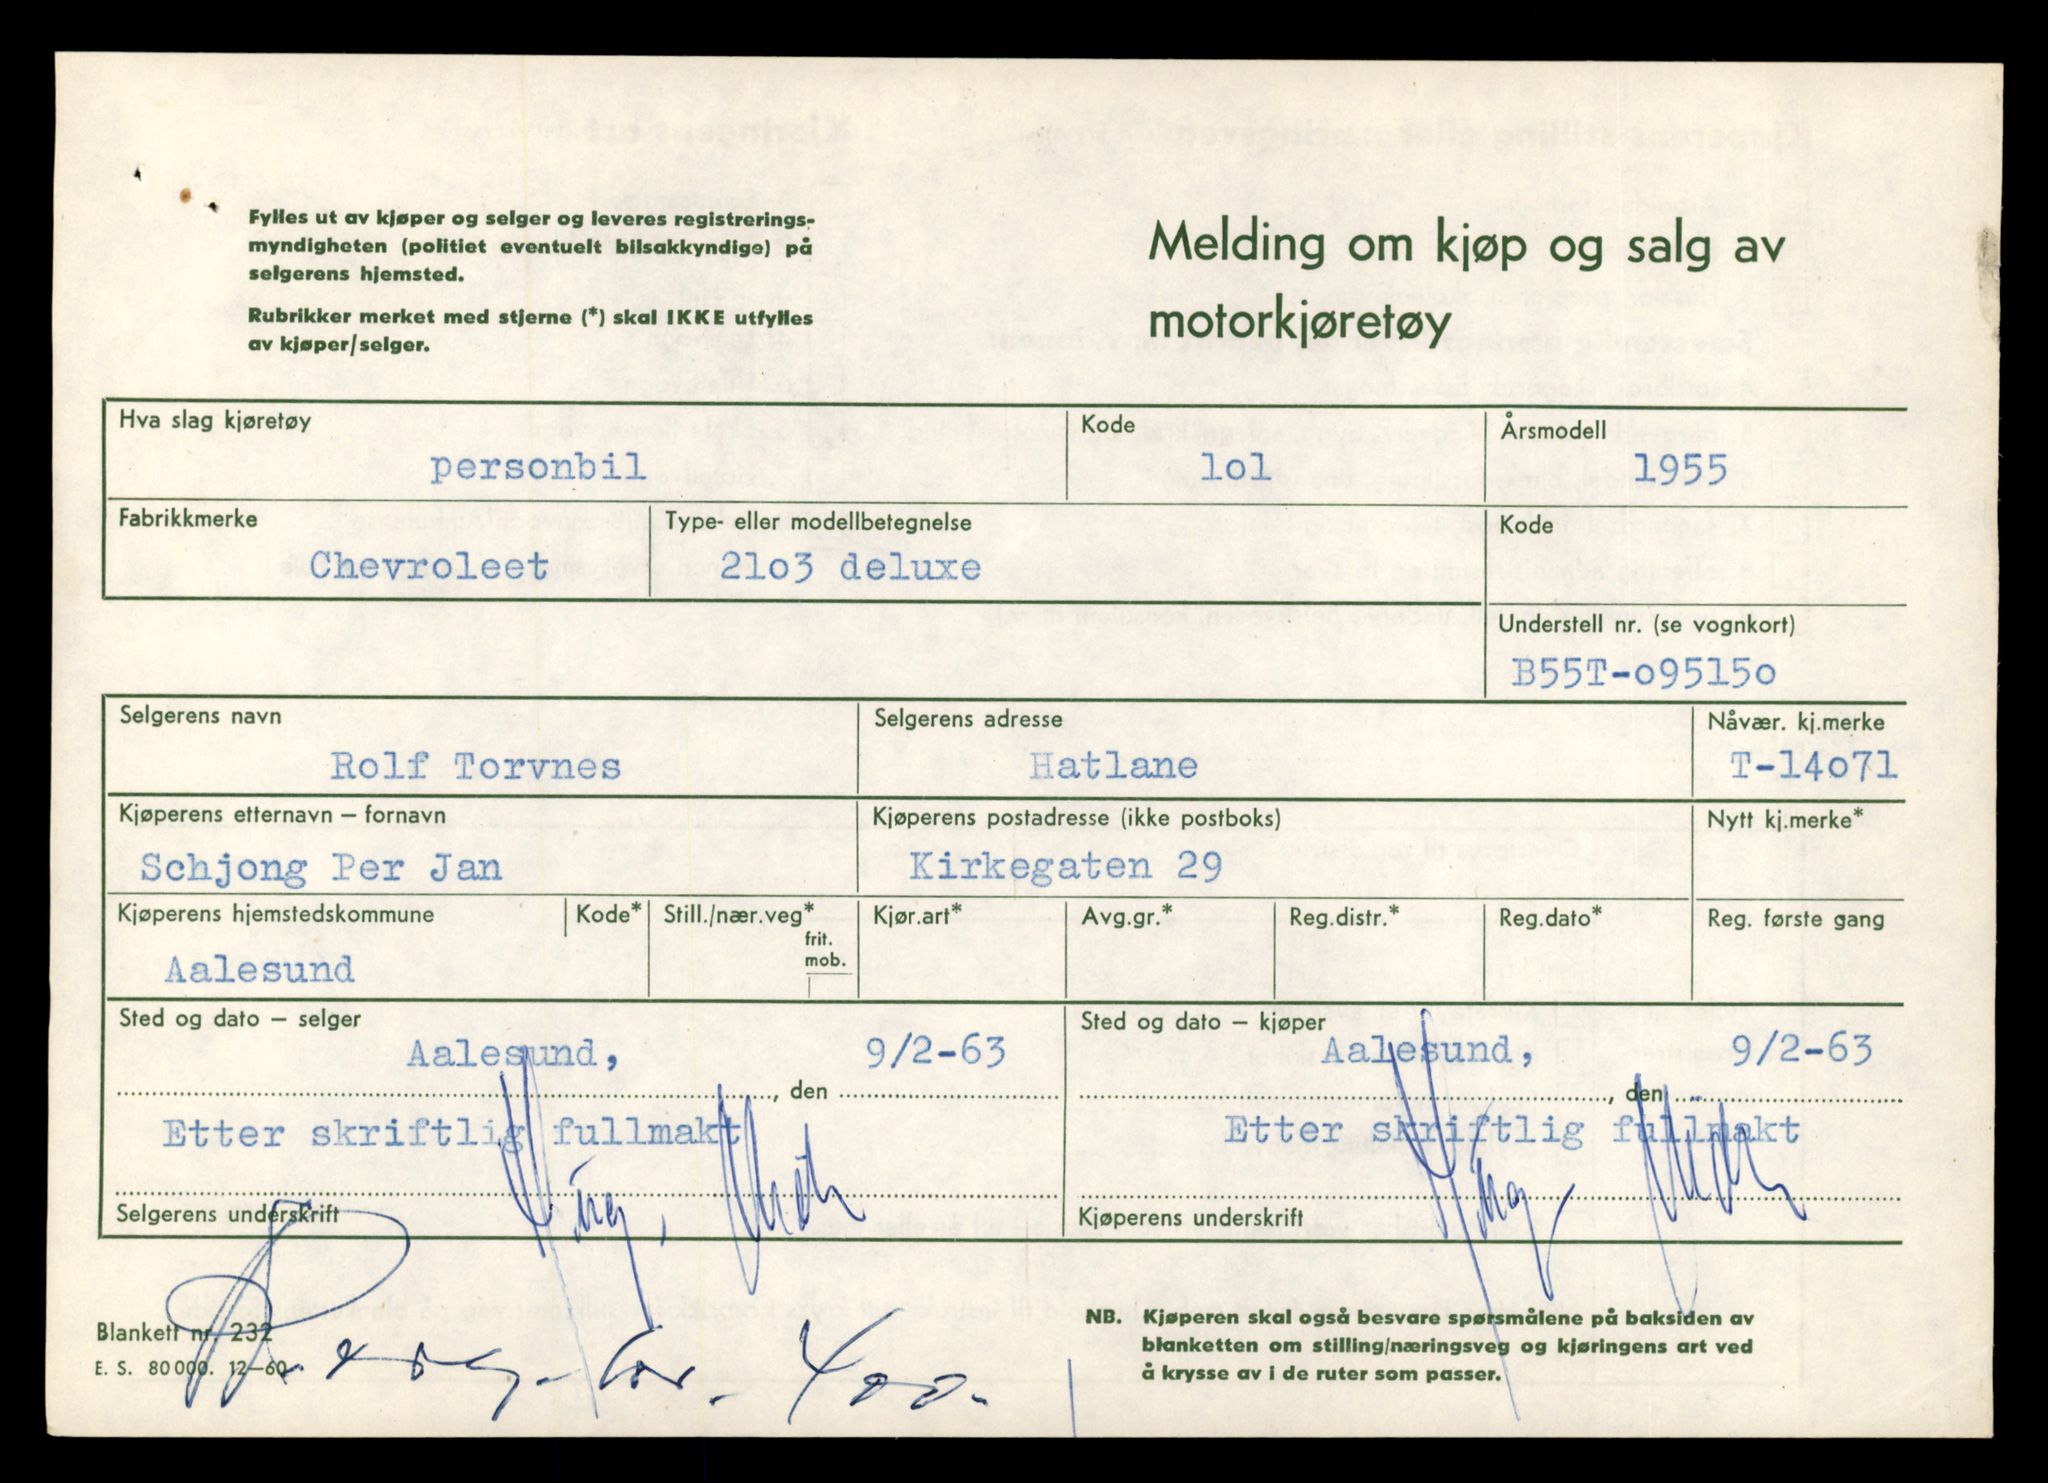 Fylles ut av kjøper og selger og leveres registrerings-
myndigheten (politiet eventuelt bilsakkyndige) på
selgerens hjemsted.
Rubrikker merket med stjerne (*) skal IKKE utfylles
av kjøper/selger.
Melding om kjøp og salg av
motorkjøretøy
Hva slag kjøretøy
personbil
Kode
lol
Årsmodell
1955
Fabrikkmerke
Chevroleet
Type- eller modellbetegnelse
21o3 deluxe
Kode
Understell nr. (se vognkort)
B55T-o9515o
Selgerens navn
Rolf Torvnes
Selgerens adresse
Hatlane
Nåvær. kj.merke
T-14o71
Kjøperens etternavn – fornavn
Schjong Per Jan
Kjøperens postadresse (ikke postboks)
Kirkegaten 29
Nytt kj.merke*
Kjøperens hjemstedskommune
Aalesund
Kode*
Still./nær.veg*
frit.
mob.
Kjør.art*
Avg.gr.*
Reg.distr.*
Reg.dato*
Reg. første gang
Sted og dato – selger
Aalesund, 9/2-63
, den
Etter skriftlig fullmakt
Selgerens underskrift
Sted og dato – kjøper
Aalesund, 9/2-63
, den
Etter skriftlig fullmakt
Kjøperens underskrift
Blankett nr. 232
E. S. 80000. 12–60
400.
NB. Kjøperen skal også besvare spørsmålene på baksiden av
blanketten om stilling/næringsveg og kjøringens art ved
å krysse av i de ruter som passer.